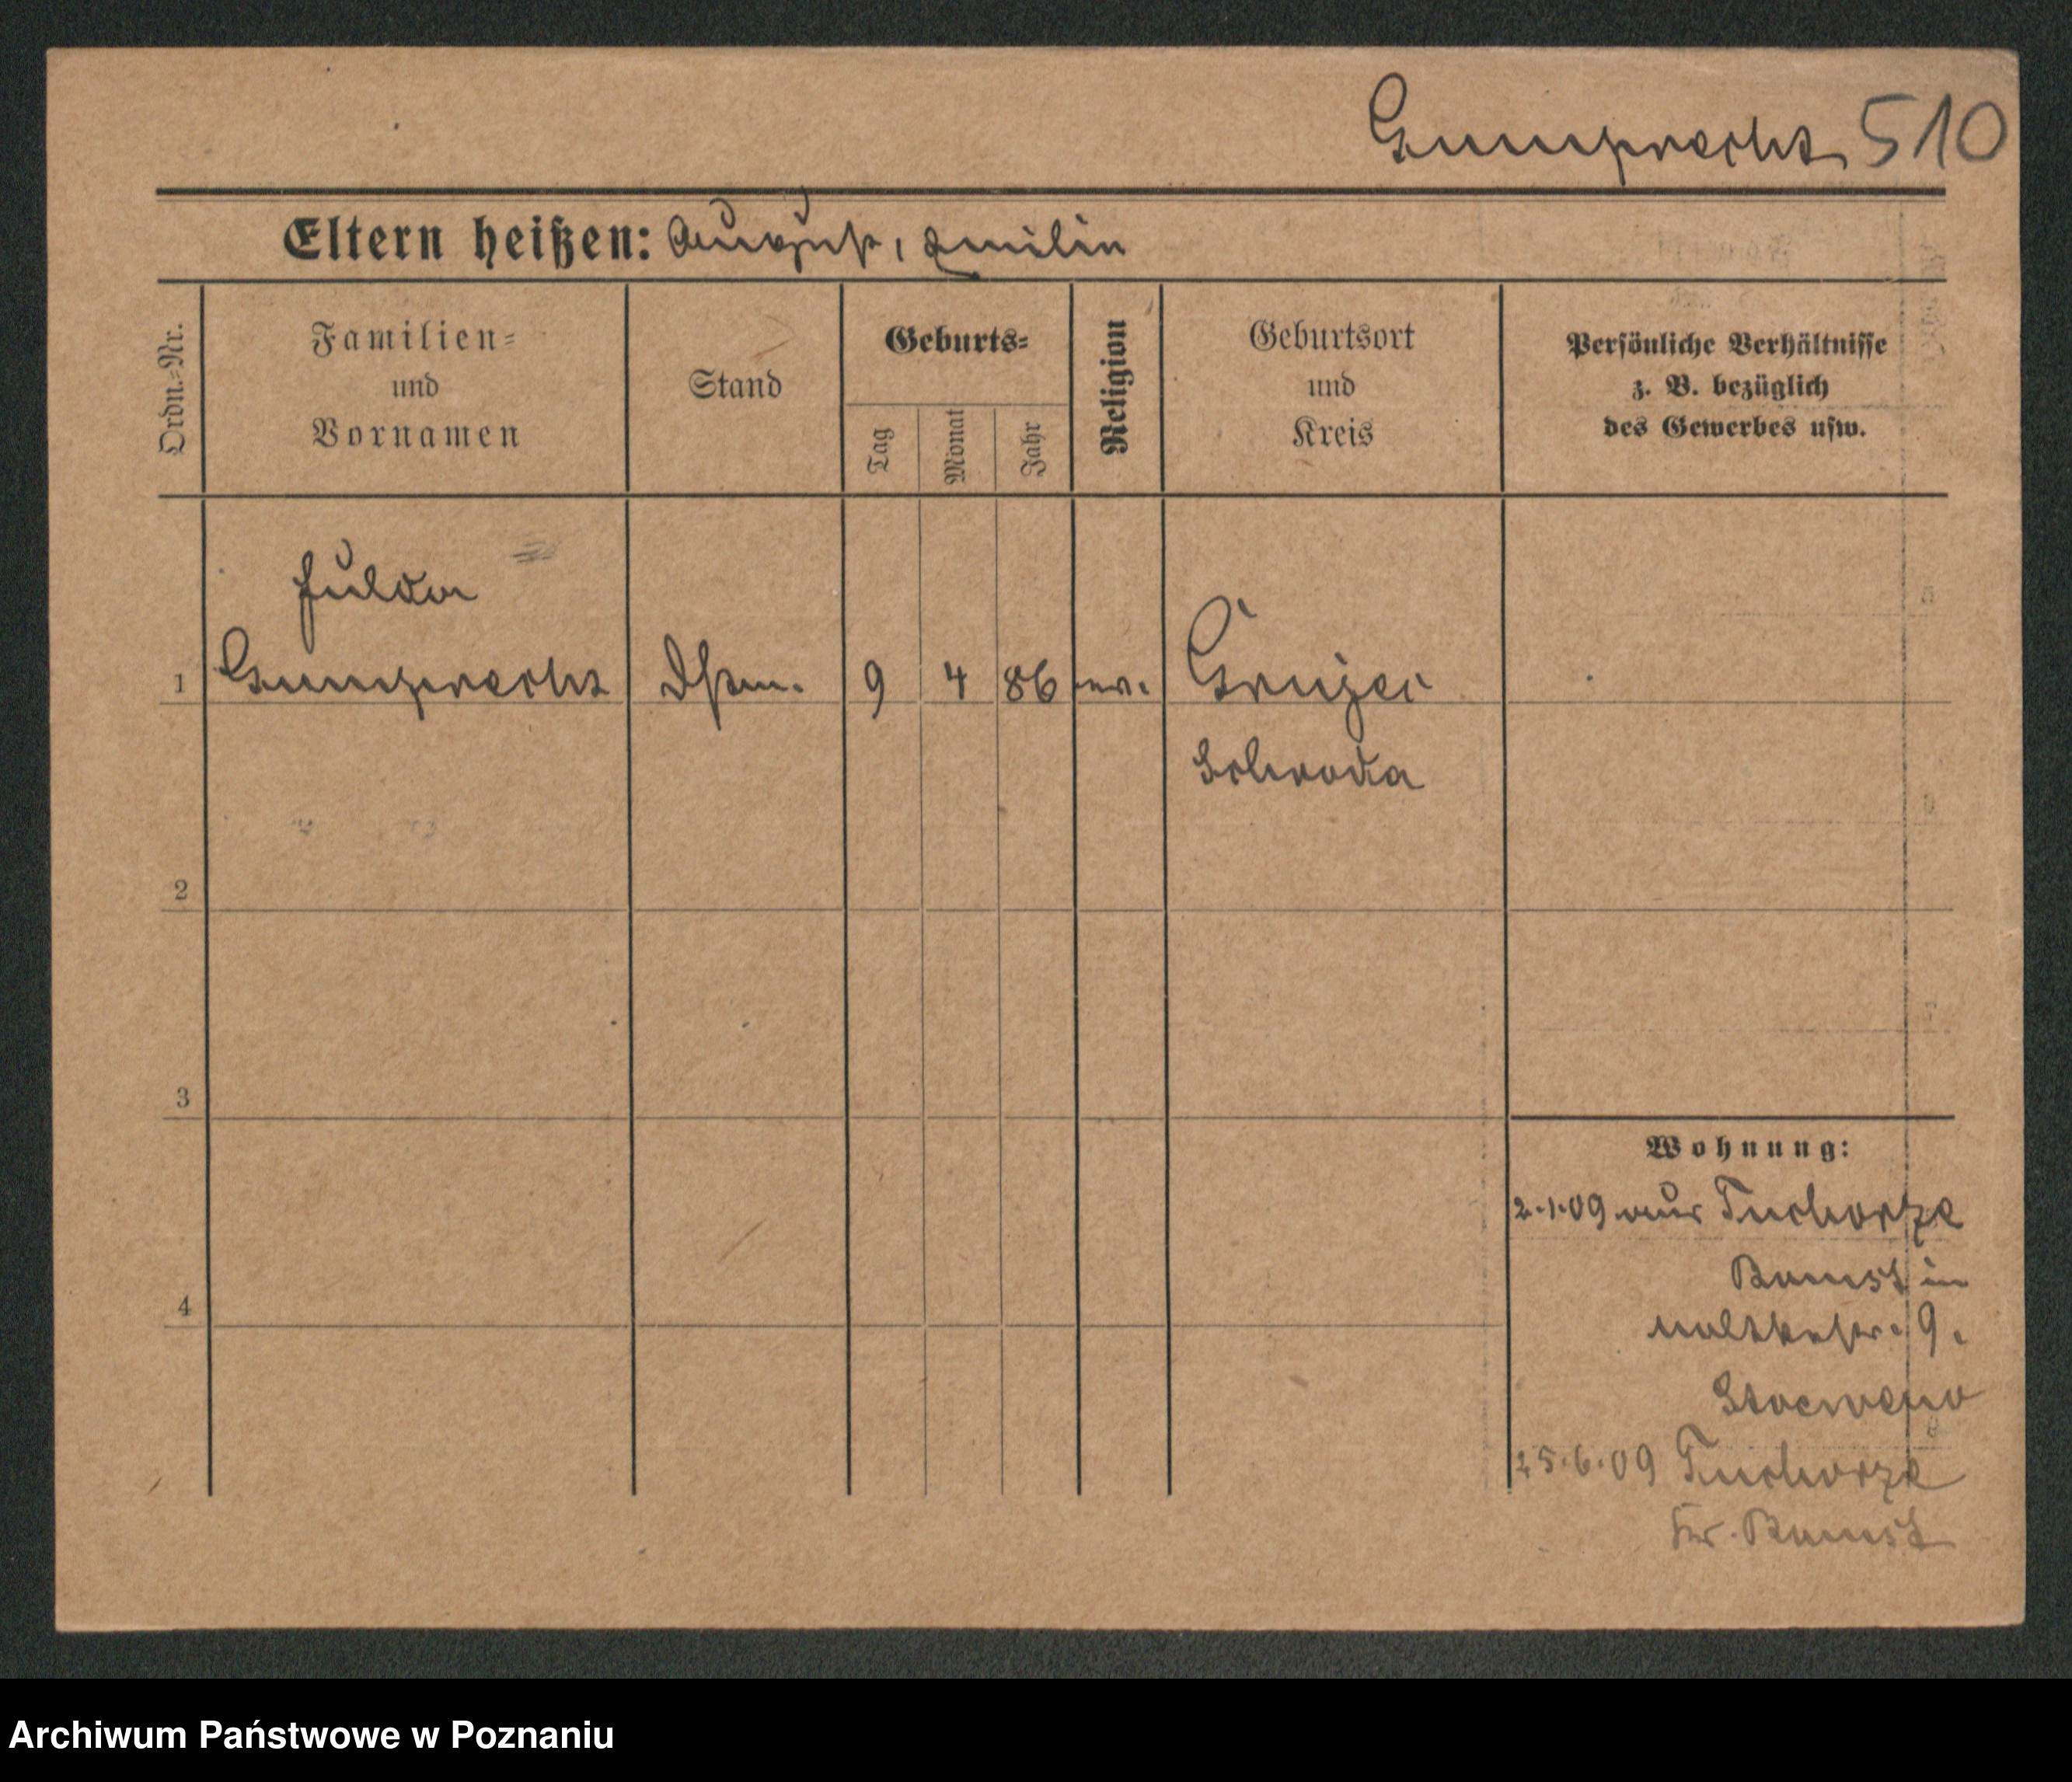 Gumprecht 510
Eltern heißen: August, Emilie
Ordn.=Nr.
Familien=
und
Vornamen
Stand
Geburts=
Tag
Monat
Jahr
Religion
Geburtsort
und
Kreis
Persönliche Verhältnisse
z. B. bezüglich
des Gewerbes usw.
Hulda
1 Gumprecht 9 4 86 ev.
Schroda
2
3
4
Wohnung:
2.1.09 aus Tuchorze
Bomst in
Moltkestr. 9.
25.6.09 Tuchorze
Kr. Bomst
Archiwum Państwowe w Poznaniu